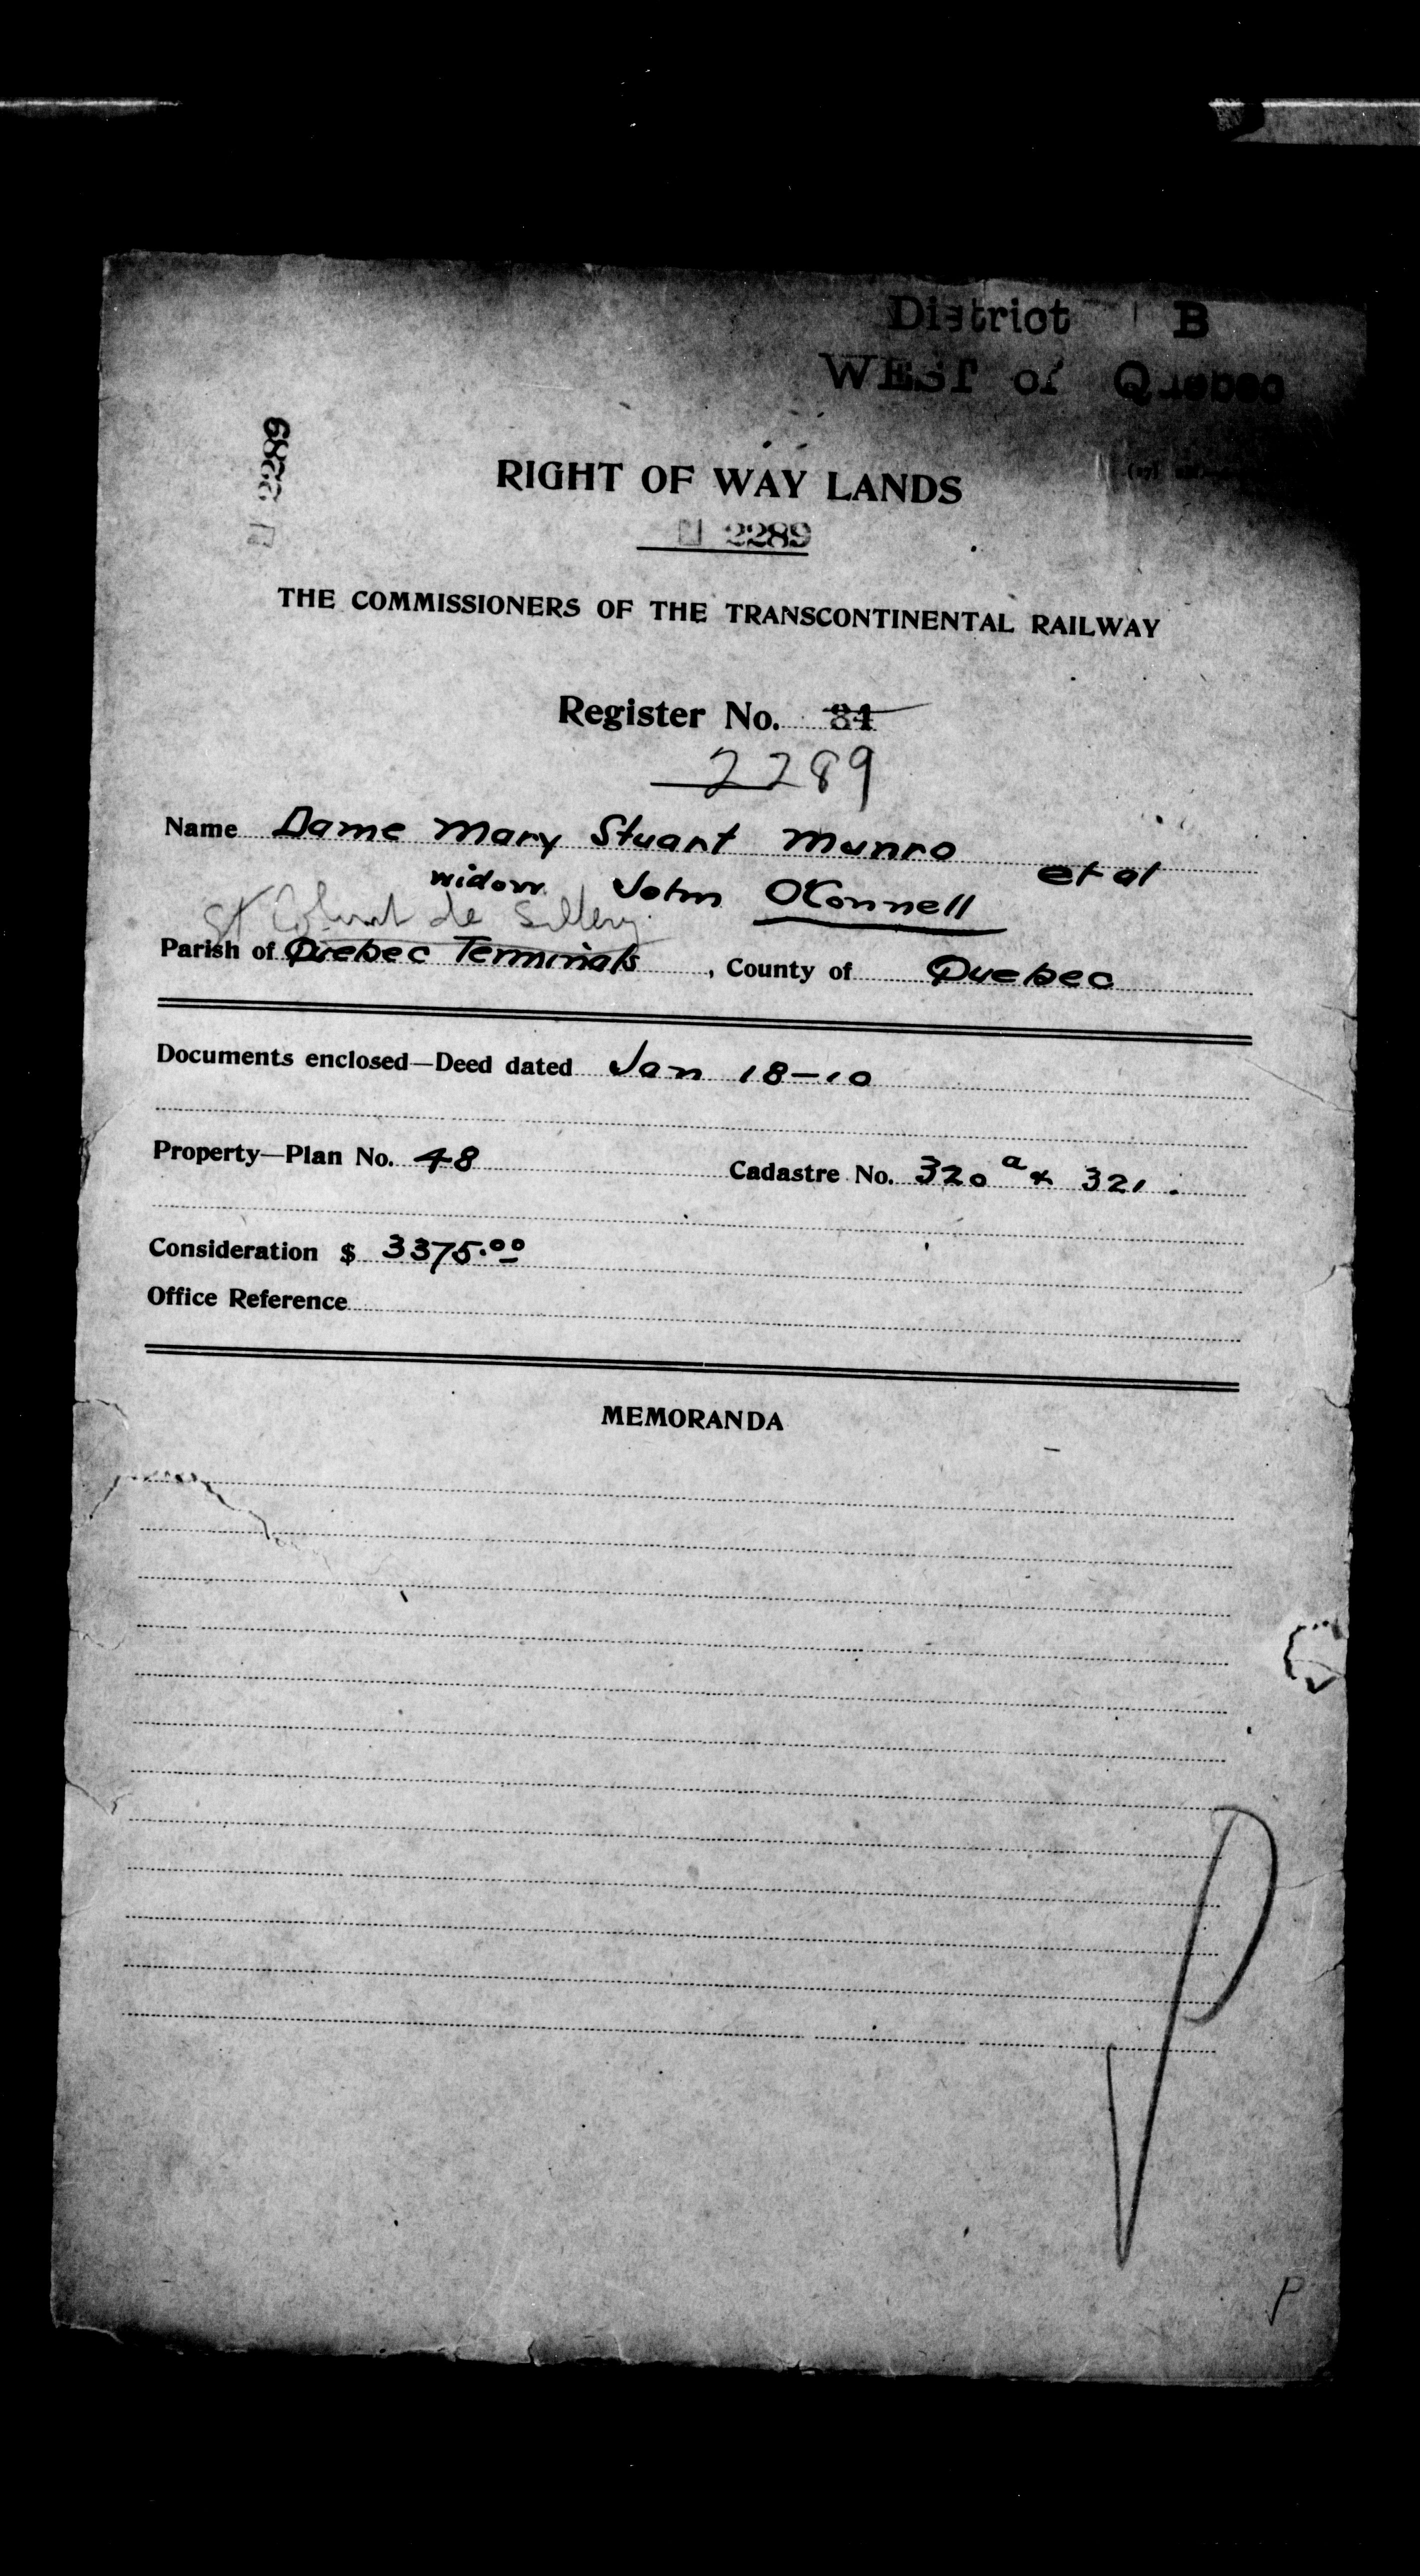 District B
WEST of Quebec
2289
RIGHT OF WAY LANDS
2289
THE COMMISSIONERS OF THE TRANSCONTINENTAL RAILWAY
Register No. 84
2289
Name Dame Mary Stuart Munro et al
widow John OConnell
St de Sillery
Parish of Quebec Terminals, County of Quebec
Documents enclosed—Deed dated Jan 18-10
Property—Plan No. 48 Cadastre No. 320 a & 321.
Consideration $ 3375.00
Office Reference
MEMORANDA
P